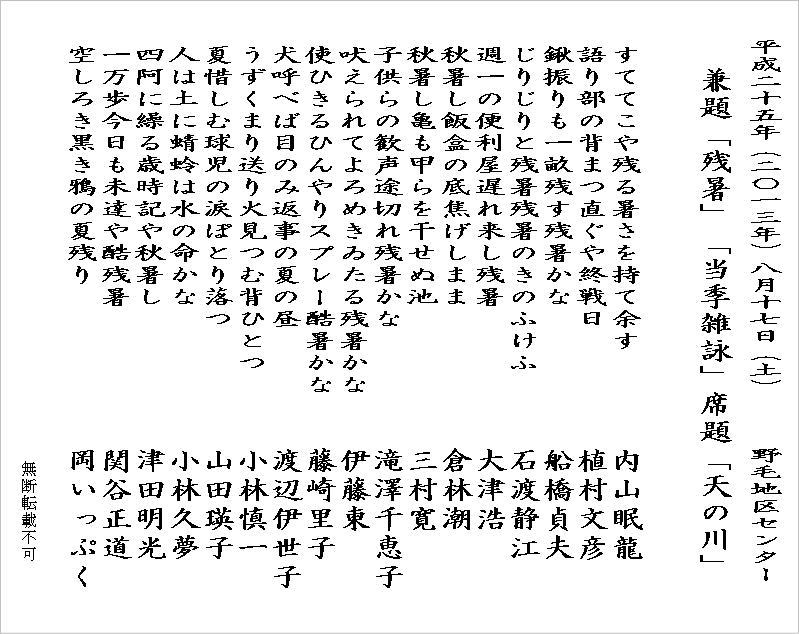 平成二十五年(二〇一三年)八月十七日(土) 野毛地区センター
兼題「残暑」「当季雑詠」席題「天の川」
すててこや残る暑さを持て余す 内山眠龍
語り部の背まつ直ぐや終戦日 植村文彦
鍬振りも一畝残す残暑かな 船橋貞夫
じりじりと残暑残暑のきのふけふ 石渡静江
週一の便利屋遅れ来し残暑 大津浩
秋暑し飯盒の底焦げしまま 倉林潮
秋暑し亀も甲らを干せぬ池 三村寛
子供らの歓声途切れ残暑かな 滝澤千恵子
吠えられてよろめきゐたる残暑かな 伊藤東
使ひきるひんやりスプレー酷暑かな 藤崎里子
犬呼べば目のみ返事の夏の昼 渡辺伊世子
うずくまり送り火見つむ背ひとつ 小林慎一
夏惜しむ球児の涙ぽとり落つ 山田瑛子
人は土に蜻蛉は水の命かな 小林久夢
四阿に繰る歳時記や秋暑し 津田明光
一万歩今日も未達や酷残暑 関谷正道
空しろき黒き鴉の夏残り 岡いっぷく
無断転載不可